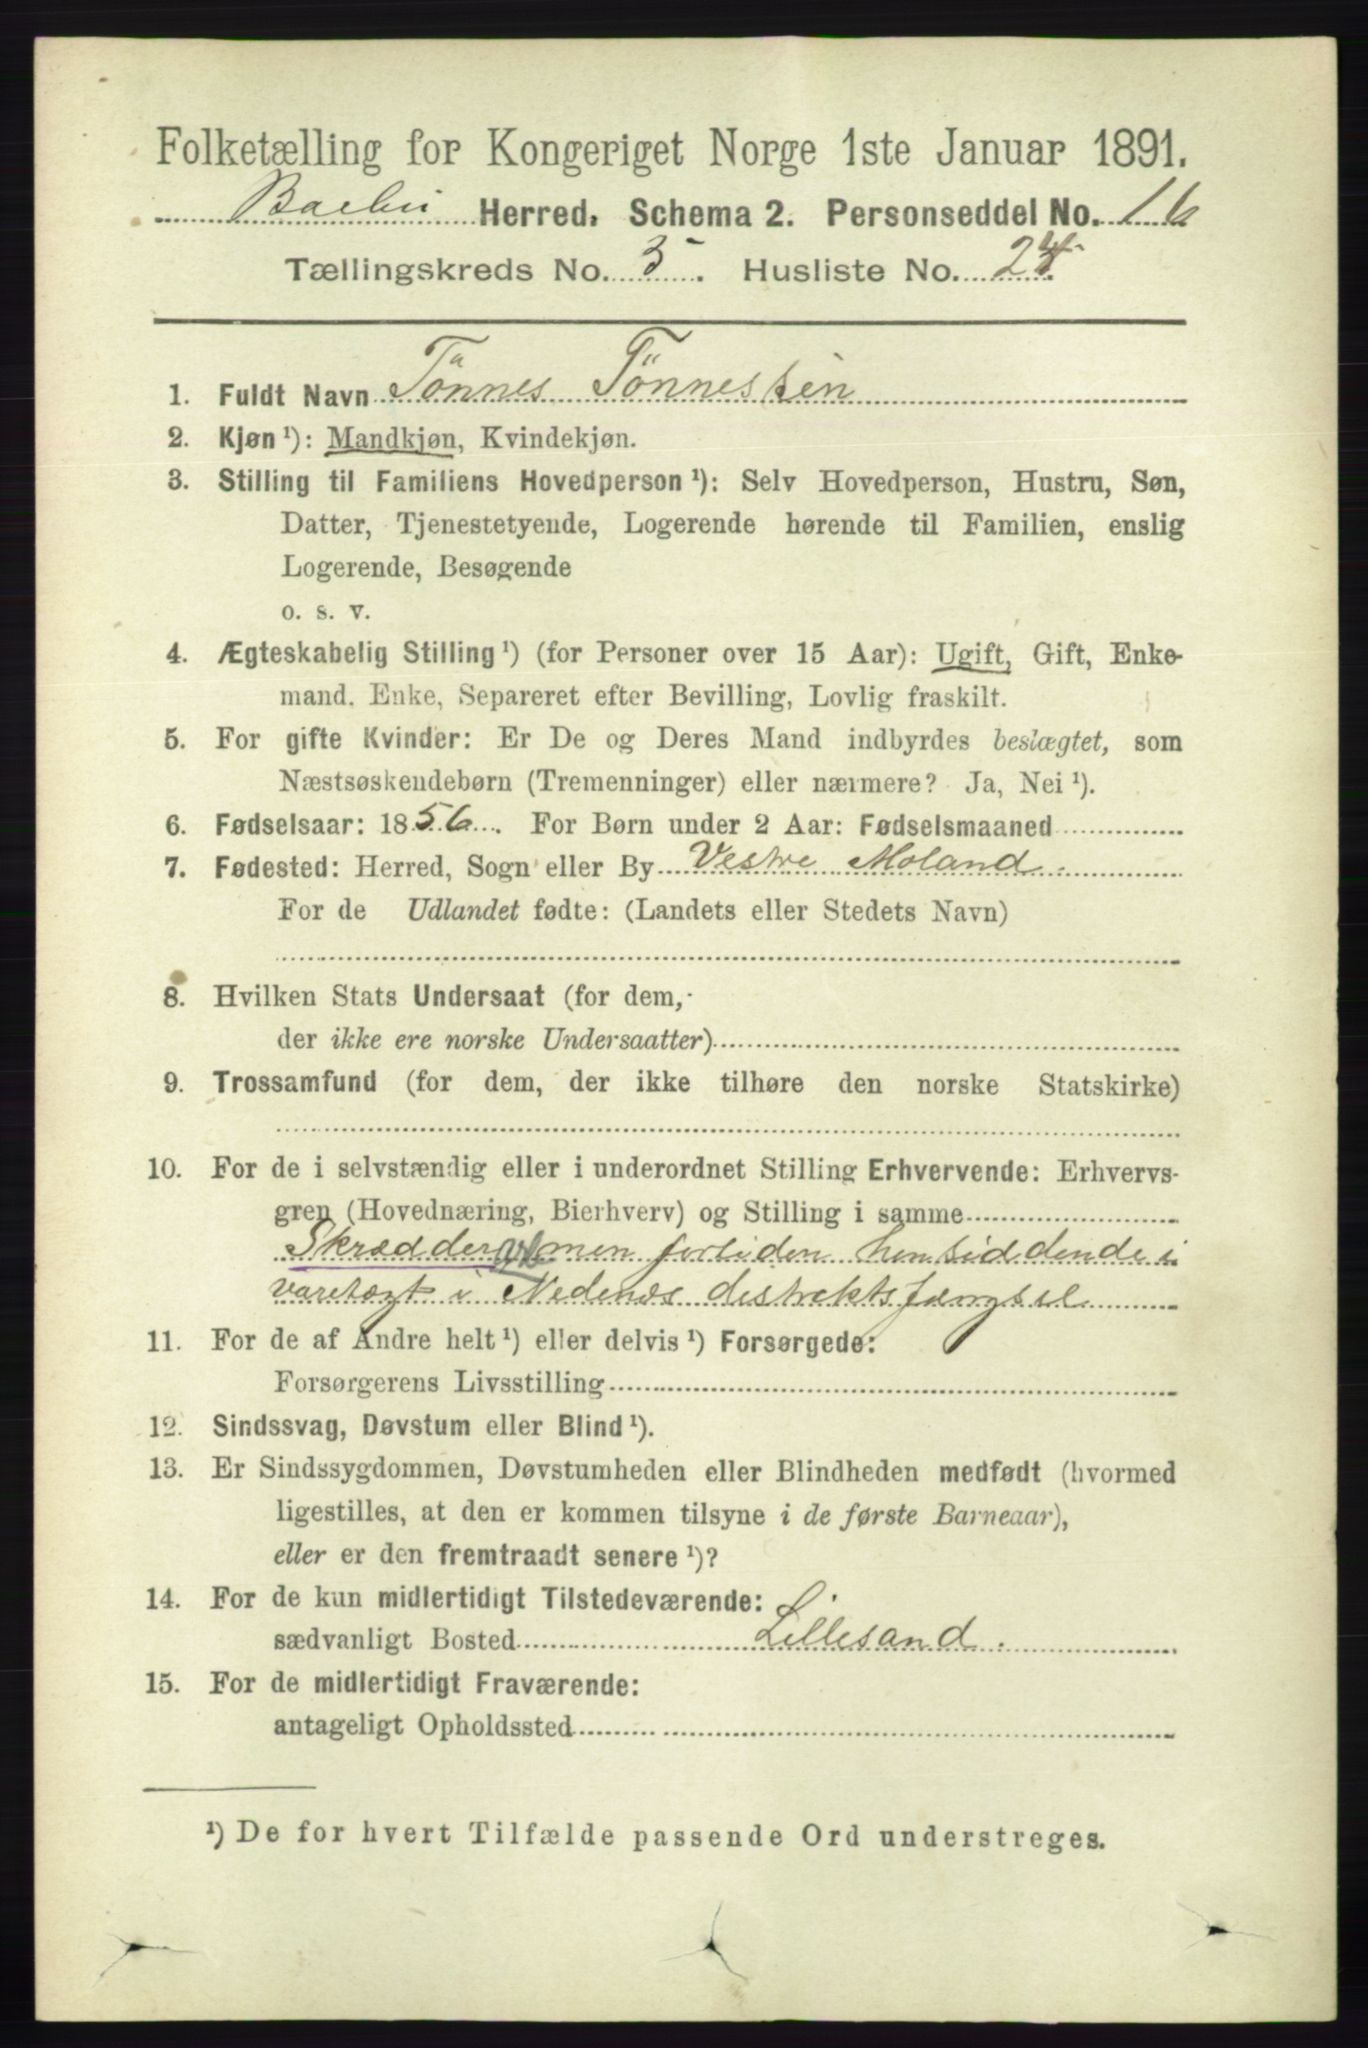 Folketælling for Kongeriget Norge 1ste Januar 1891.
Barbu Herred. Schema 2. Personseddel No. 16
Tællingskreds No. 3. Husliste No. 24
1. Fuldt Navn Tönnes Tönnessen
2. Kjøn ¹): Mandkjøn, Kvindekjøn.
3. Stilling til Familiens Hovedperson ¹): Selv Hovedperson, Hustru, Søn,
Datter, Tjenestetyende, Logerende hørende til Familien, enslig
Logerende, Besøgende
o. s. v.
4. Ægteskabelig Stilling ¹) (for Personer over 15 Aar): Ugift, Gift, Enke-
mand, Enke, Separeret efter Bevilling, Lovlig fraskilt.
5. For gifte Kvinder: Er De og Deres Mand indbyrdes beslægtet, som
Næstsøskendebørn (Tremenninger) eller nærmere? Ja, Nei ¹).
6. Fødselsaar: 1856. For Børn under 2 Aar: Fødselsmaaned
7. Fødested: Herred, Sogn eller By Vestre Moland.
For de Udlandet fødte: (Landets eller Stedets Navn)
8. Hvilken Stats Undersaat (for dem,
der ikke ere norske Undersaatter)
9. Trossamfund (for dem, der ikke tilhøre den norske Statskirke)
10. For de i selvstændig eller i underordnet Stilling Erhvervende: Erhvervs-
gren (Hovednæring, Bierhverv) og Stilling i samme
Skrædder men fortiden hensiddende i
varetægt i Nedenæs distriktsfængsel
11. For de af Andre helt ¹) eller delvis ¹) Forsørgede:
Forsørgerens Livsstilling
12. Sindssvag, Døvstum eller Blind ¹).
13. Er Sindssygdommen, Døvstumheden eller Blindheden medfødt (hvormed
ligestilles, at den er kommen tilsyne i de første Barneaar),
eller er den fremtraadt senere ¹)?
14. For de kun midlertidigt Tilstedeværende:
sædvanligt Bosted Lillesand.
15. For de midlertidigt Fraværende:
antageligt Opholdssted
¹) De for hvert Tilfælde passende Ord understreges.